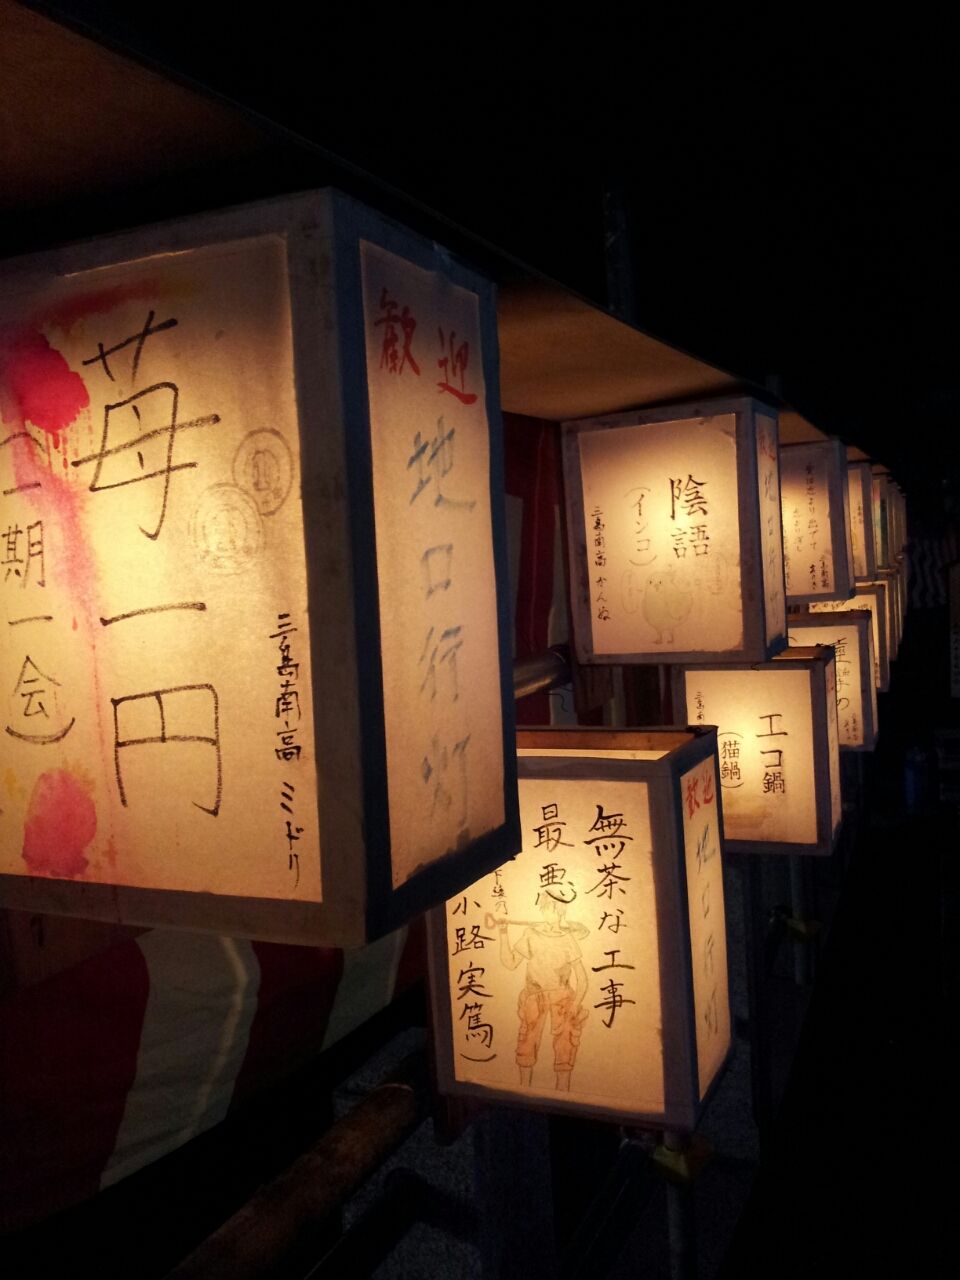 苺一円
一期一会)
三島南高 ミドリ
歓迎
地口行灯
陰語
(インコ)
三島南高 かんぬ
エコ鍋
(猫鍋)
三島南
歓迎
地口行灯
無茶な工事
最悪
小路実篤)